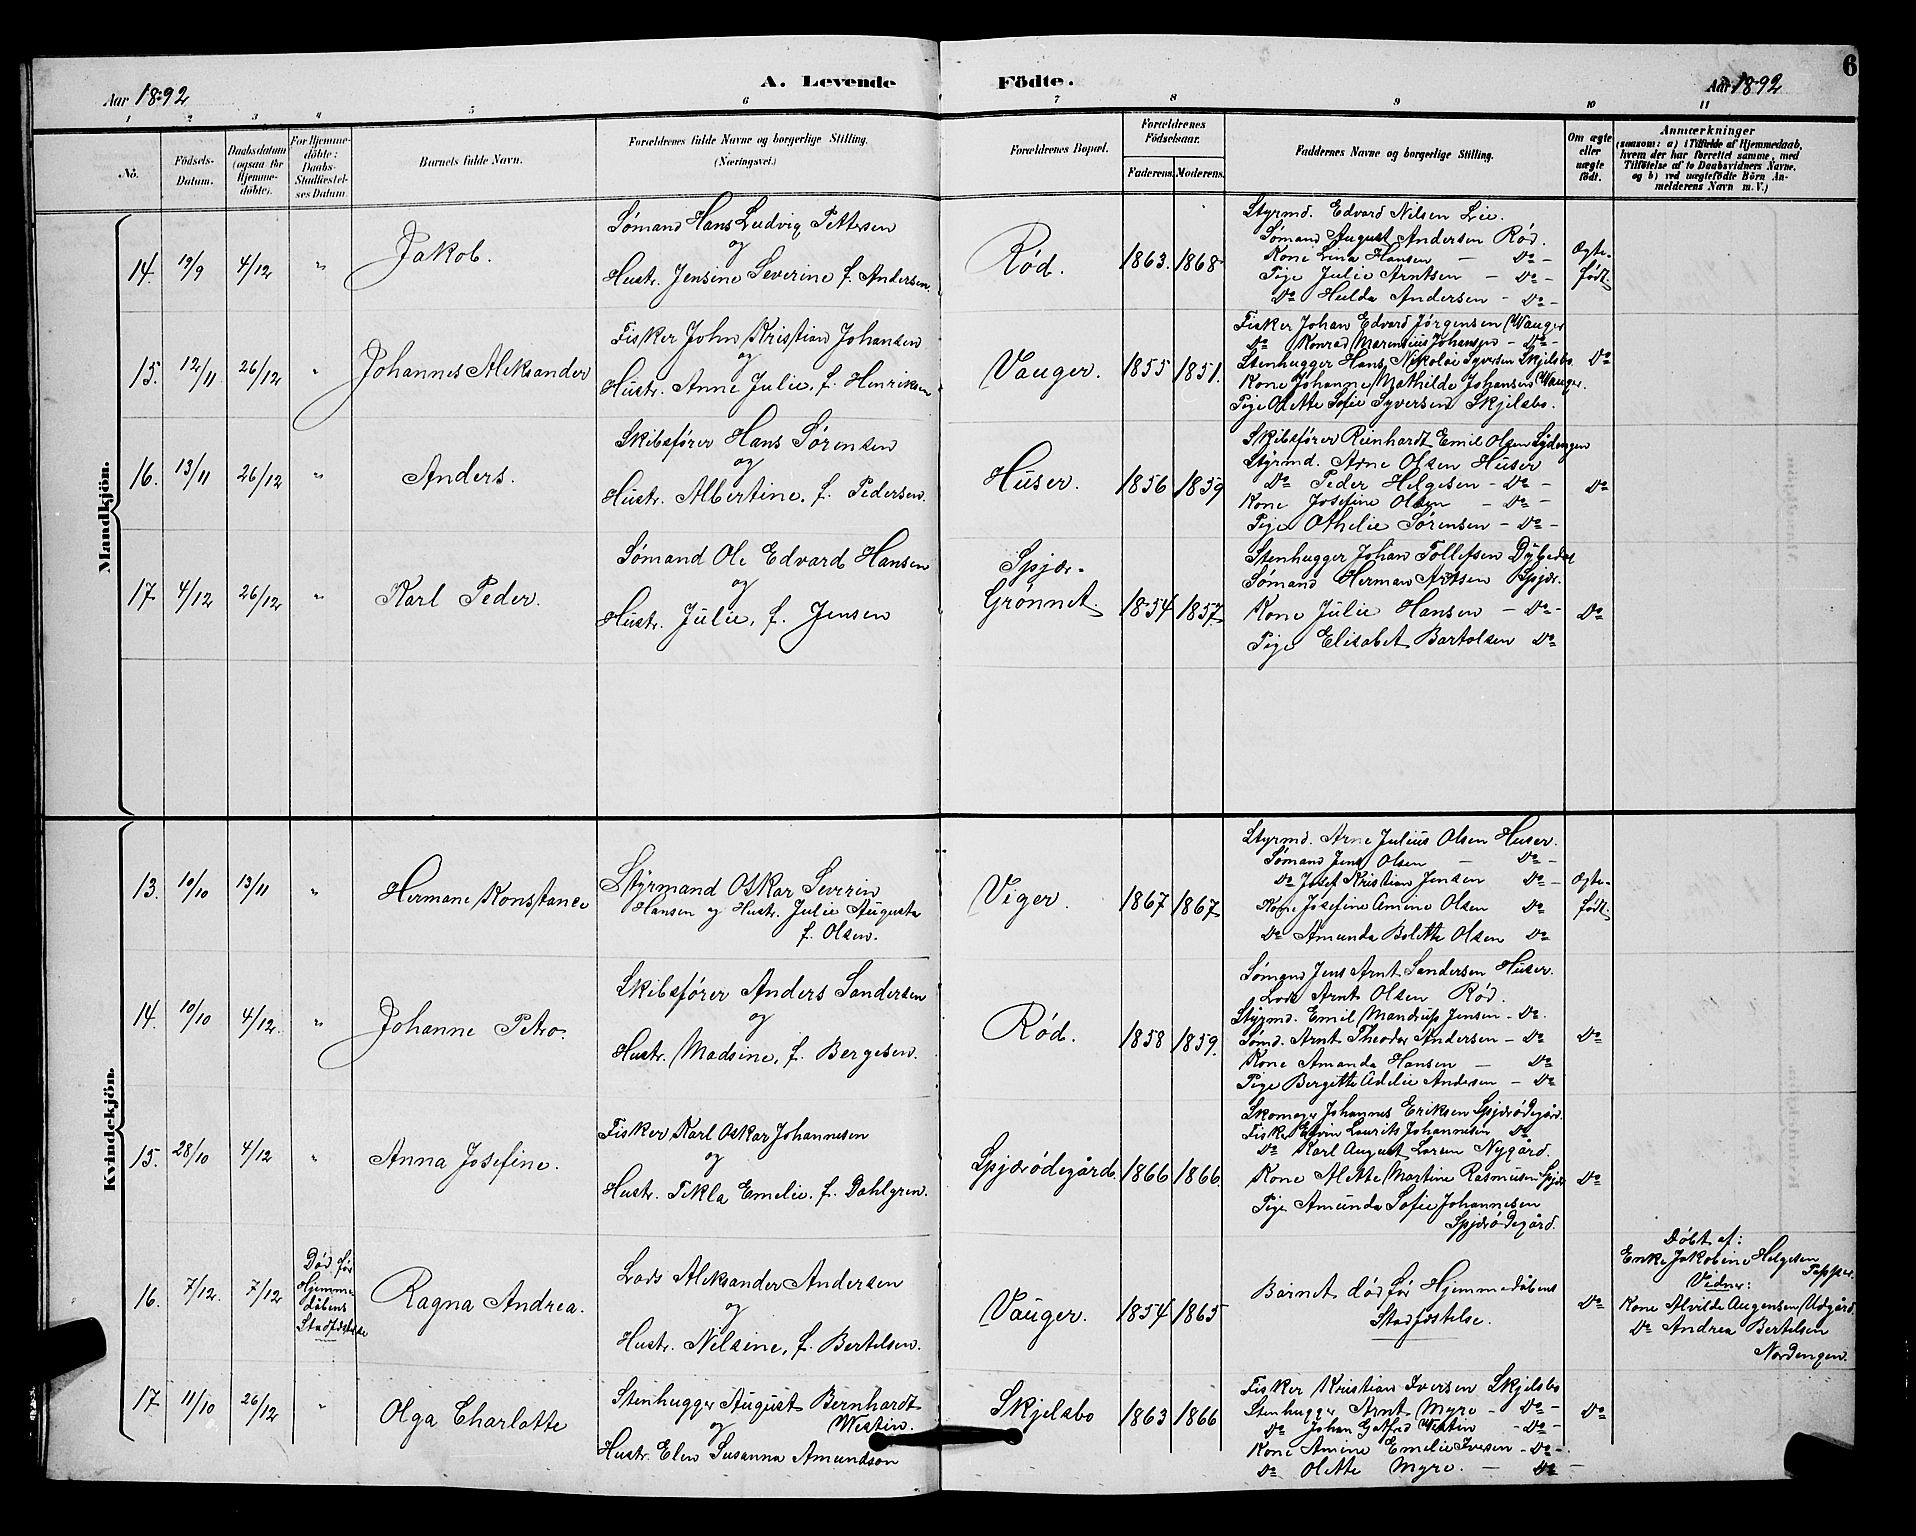 Aar 1892
A. Levende Födte.
Aar 1892
6
1 2 3 4 5 6 7 8 9 10 11
No.
Födsels-Datum.
Daabsdatum (ogsaa for Hjemme-döbte).
For Hjemme-döbte: Daabs-Stadfæstelses Datum.
Barnets fulde Navn.
Forældrenes fulde Navne og borgerlige Stilling. (Næringsvei.)
Forældrenes Bopæl.
Forældrenes Födselsaar.
Faderens. Moderens.
Faddernes Navne og borgerlige Stilling.
Om ægte eller uægte födt.
Anmærkninger
(saasom: a) i Tilfælde af Hjemmedaab, hvem der har forrettet samme, med Tilföielse af to Daabsvidners Navne, og b) ved uægtefödte Börn Anmelderens Navn m. V.)
Mandkjön.
14. 19/9 4/12 "
Jakob.
Sømand Hans Ludvig Pettersen
og
Hustr. Jensine Severine f. Andersen.
Rød.
1863. 1868
Styrmd. Edvard Nilsen Lie.
Sømand August Andersen Rød.
Kone Lina Hansen — Do —
Pige Julie Arntsen — Do —
Do Hulda Andersen — Do —
Ægte-
født.
15. 12/11 26/12 "
Johannes Aleksander
Fisker John Kristian Johansen
og
Hustr. Anne Julie, f. Henriksen
Vauger.
1855 1851.
Fisker Johan Edvard Jørgensen Wauger
Do Konrad Marentius Johansen — Do —
Stenhugger Hans Nikolai Syversen Skjelsbo.
Kone Johanne Mathilde Johansen Wauger.
Pige Olette Sofie Syversen Skjelsbo.
Do
16. 13/11 26/12 "
Anders.
Skibsfører Hans Sørensen
og
Hustr. Albertine, f. Pedersen.
Huser.
1856 1859
Skibsfører Reinhardt Emil Olsen Sydengen
Styrmd. Arne Olsen Huser
Do Peder Helgesen — Do —
Kone Josefine Olsen — Do —
Pige Othelie Sørensen — Do —
Do
17 4/12 26/12 "
Karl Peder.
Sømand Ole Edvard Hansen
og
Hustr. Julie, f. Jensen
Spjær-
Grønnet.
1854 1857.
Stenhugger Johan Tollefsen Dybedal
Sømand Herman Arntsen Spjær.
Kone Julie Hansen — Do —
Pige Elisabet Bartolsen Do
Do
Kvindekjön.
13. 10/10 13/11 "
Hermane Konstance
Styrmand Oskar Severin
Hansen og Hustr. Julie Augusta
f. Olsen.
Viger.
1867 1867
Styrmd. Arne Julius Olsen Huser.
Sømand Jens Olsen — Do —
Do Josef Kristian Jensen Do —
Kone Josefine Amine Olsen Do
Do Amunda Bolette Olsen Do
Ægte-
født.
14. 10/10 4/12. "
Johanne Petra.
Skibsfører Anders Sandersen
og
Hustr. Madsine, f. Bergesen.
Rød.
1858 1859.
Sømand Jens Arnt Sandersen Huser.
Lods Arnt Olsen Rød.
Styrmd. Emil Mandrup Jensen — Do.
Sømd. Arnt Theodor Andersen — Do
Kone Amanda Hansen — Do
Pige Bergitte Adelie Andersen — Do
Do
15. 28/10 4/12 "
Anna Josefine.
Fisker Karl Oskar Johannesen
og
Hustr. Tekla Emelie, f. Dahlgren.
Spjærødegård.
1866 1866
Skomager Johannes Eriksen Spjærødegård.
Fisker Edvin Laurits Johannesen Do
Do Karl August Loren Nygård.
Kone Alette Martine Rasmusen Spjær
Pige Amunda Sofie Johannesen
Spjærødegård.
Do
16. 7/12. 7/12
Død før
Hjemme-
dåbens
Stadfæstelse
Ragna Andrea.
Lods Aleksander Andersen
og
Hustr. Nilsine, f. Bertelsen.
Vauger.
1854 1865
Barnet død før Hjemmedåbens
Stadfæstelse.
Do
Døbt af:
Enke Jakobine Helgesen
Tepper.
Vidner:
Kone Alvilde Augensen Utgård
Do Andrea Bertelsen
Nordengen.
17 11/10 26/12 "
Olga Charlotte
Stenhugger August Bernhardt
og Westin.
Hustr. Elen Susanna Amundson
Skjelsbo
1863 1866
Fisker Kristian Iversen Skjelsbo
Stenhugger Arnt Myre — Do —
Do Johan Gotfred Westin — Do —
Kone Amine Emelie Iversen — Do —
Do Olette Myre. — Do —
Do